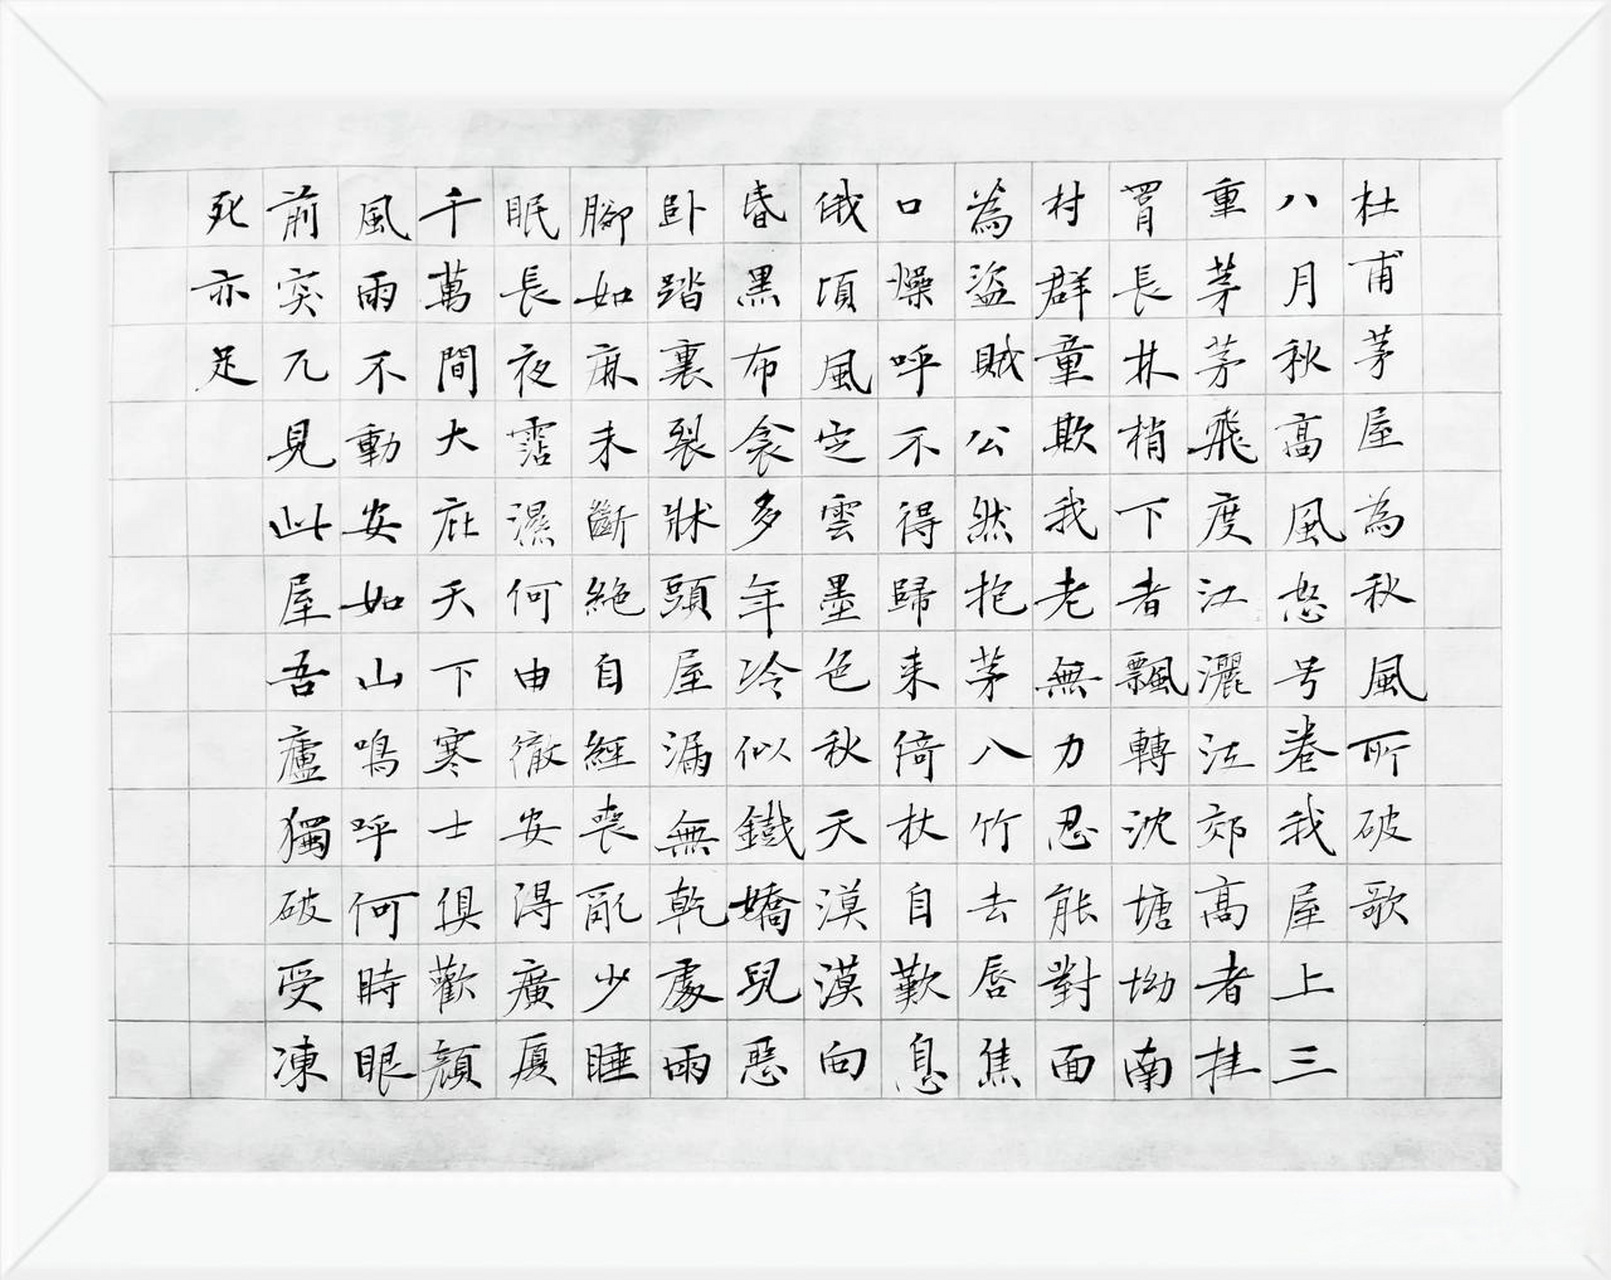 杜甫茅屋為秋風所破歌
八月秋高風怒号卷我屋上三
重茅茅飛度江灑江郊高者挂
罥長林梢下者飄轉沈塘坳南
村群童欺我老無力忍能對面
為盜賊公然抱茅入竹去唇焦
口燥呼不得歸来倚杖自歎息
俄頃風定雲墨色秋天漠漠向
昏黑布衾多年冷似鐵嬌兒惡
卧踏裏裂牀頭屋漏無乾處雨
腳如麻未斷絕自經喪亂少睡
眠長夜霑濕何由徹安得廣厦
千萬間大庇天下寒士俱歡顏
風雨不動安如山嗚呼何時眼
前突兀見此屋吾廬獨破受凍
死亦足